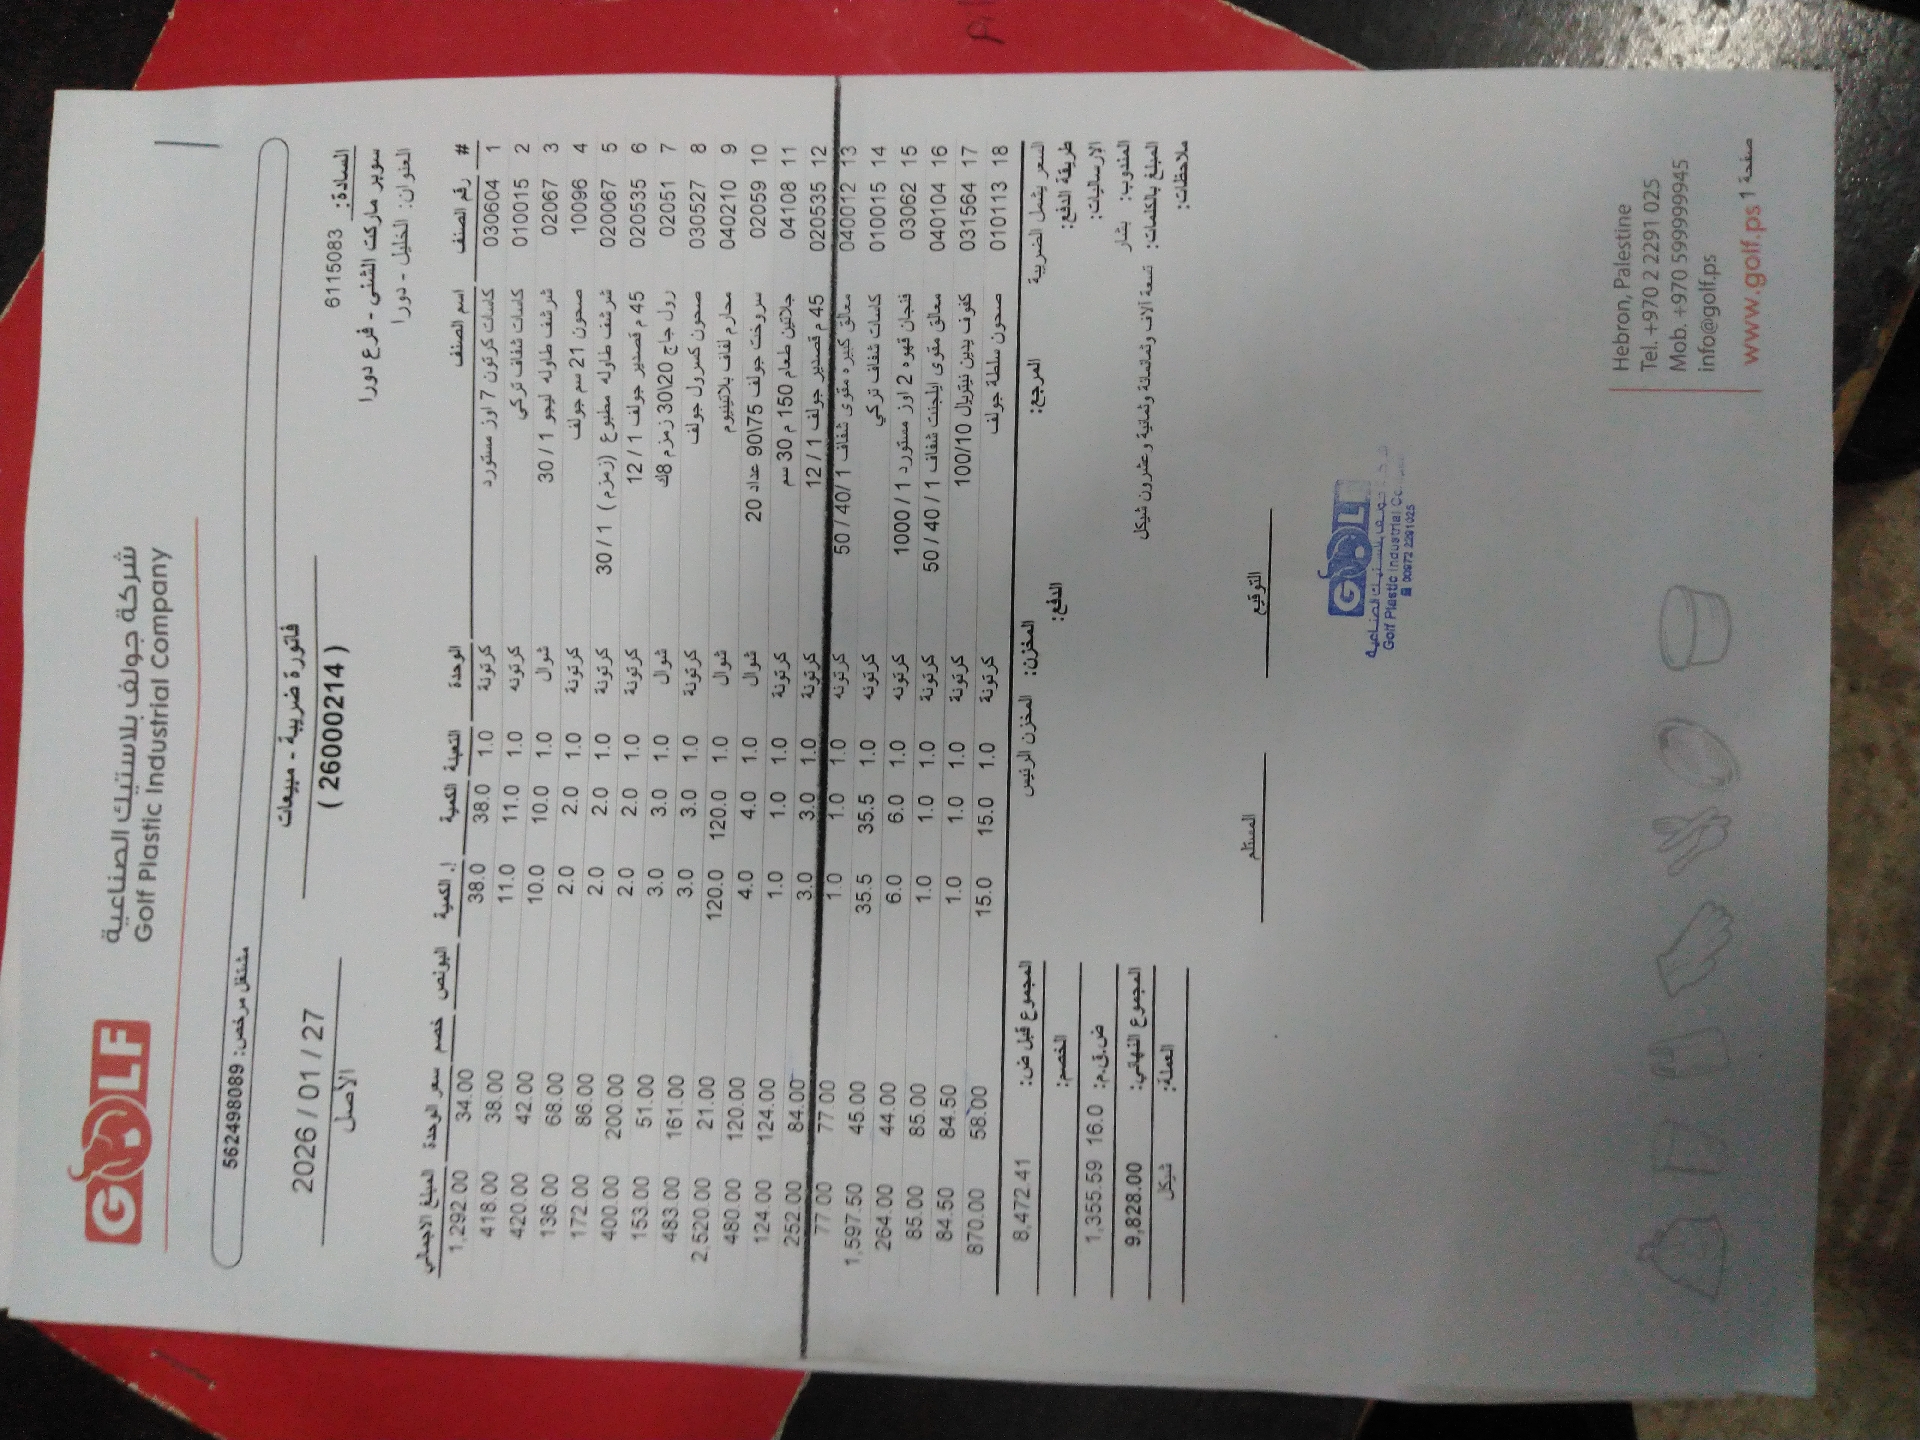 GOLF
شركة جولف بلاستيك الصناعية
Golf Plastic Industrial Company
مشتغل مرخص: 562498089
فاتورة ضريبية - مبيعات
( 26000214 )
2026 / 01 / 27
الأصل
السادة: 6115083
سوبر ماركت الشني - فرع دورا
العنوان: الخليل - دورا
# رقم الصنف اسم الصنف الوحدة التعبئة الكمية إ. الكمية البونص خصم سعر الوحدة المبلغ الاجمالي
1 030604 كاسات كرتون 7 اوز مستورد كرتونة 1.0 38.0 38.0 34.00 1,292.00
2 010015 كاسات شفاف تركي كرتونه 1.0 11.0 11.0 38.00 418.00
3 02067 شرشف طاوله ليجو 1 / 30 شوال 1.0 10.0 10.0 42.00 420.00
4 10096 صحون 21 سم جولف كرتونة 1.0 2.0 2.0 68.00 136.00
5 020067 شرشف طاوله مطبوع (زمزم ) 1 / 30 كرتونة 1.0 2.0 2.0 86.00 172.00
6 020535 45 م قصدير جولف 1 / 12 كرتونة 1.0 2.0 2.0 200.00 400.00
7 02051 رول جاج 20\30 زمزم 8ك شوال 1.0 3.0 3.0 51.00 153.00
8 030527 صحون كسرول جولف كرتونة 1.0 3.0 3.0 161.00 483.00
9 040210 محارم لفاف بلاتينيوم شوال 1.0 120.0 120.0 21.00 2,520.00
10 02059 سروخت جولف 75\90 عداد 20 شوال 1.0 4.0 4.0 120.00 480.00
11 04108 جلاتين طعام 150 م 30 سم كرتونة 1.0 1.0 1.0 124.00 124.00
12 020535 45 م قصدير جولف 1 / 12 كرتونة 1.0 3.0 3.0 84.00 252.00
13 040012 معالق كبيره مقوى شفاف 1 /40 / 50 كرتونه 1.0 1.0 1.0 77.00 77.00
14 010015 كاسات شفاف تركي كرتونه 1.0 35.5 35.5 45.00 1,597.50
15 03062 فنجان قهوه 2 اوز مستورد 1 / 1000 كرتونه 1.0 6.0 6.0 44.00 264.00
16 040104 معالق مقوى ايلجنت شفاف 1 / 40 / 50 كرتونة 1.0 1.0 1.0 85.00 85.00
17 031564 كفوف يدين نيتريال 100/10 كرتونة 1.0 1.0 1.0 84.50 84.50
18 010113 صحون سلطة جولف كرتونة 1.0 15.0 15.0 58.00 870.00
السعر يشمل الضريبة المرجع: المخزن: المخزن الرئيس المجموع قبل ض: 8,472.41
طريقة الدفع: الدفع: الخصم:
الإرساليات: ض.ق.م: 16.0 1,355.59
المندوب: بشار المجموع النهائي: 9,828.00
المبلغ بالكلمات: تسعة آلاف وثمانمائة وثمانية وعشرون شيكل العملة: شيكل
ملاحظات:
التوقيع
المستلم
GOLF
Golf Plastic Industrial Co
00972 2291025
Hebron, Palestine
Tel. +970 2 2291 025
Mob. +970 599999945
info@golf.ps
www.golf.ps
صفحة 1